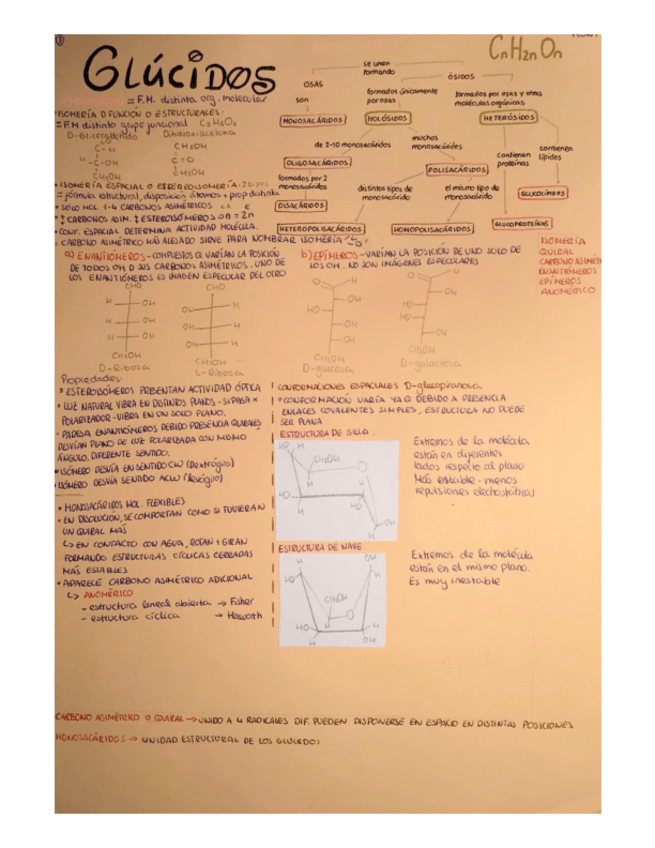 ①
CnH2nOn
GLÚCIDOS
se unen
formando
OSAS
ÓSIDOS
son
formados únicamente
por osas
formados por osas y otras
moléculas orgánicas
MONOSACÁRIDOS
HOLÓSIDOS
HETERÓSIDOS
de 2-10 monosacáridos
muchos
monosacáridos
contienen
proteínas
contienen
lípidos
OLIGOSACÁRIDOS
POLISACÁRIDOS
formados por 2
monosacáridos
distintos tipos de
monosacárido
el mismo tipo de
monosacárido
GLUCOLÍPIDOS
DISACÁRIDOS
GLUCOPROTEÍNAS
HETEROPOLISACÁRIDOS
HOMOPOLISACÁRIDOS
= F.M. distinta org. molecular
ISOMERÍA D FUNCIÓN O ESTRUCTURALES
= F.M distinto grupo funcional C3H6O3
D-Gliceraldehído Dihidroxiacetona
C-H CH2OH
H-C-OH C=O
CH2OH CH2OH
• ISOMERÍA ESPACIAL O ESTEREOISOMERÍA
• SOLO MOL. 1-4 CARBONOS ASIMÉTRICOS
• CONF. ESPACIAL DETERMINA ACTIVIDAD MOLÉCULA.
• CARBONO ASIMÉTRICO MÁS ALEJADO SIRVE PARA NOMBRAR ISOMERÍA
a) ENANTIÓMEROS - COMPUESTOS Q VARÍAN LA POSICIÓN
DE TODOS OH D SUS CARBONOS ASIMÉTRICOS. UNO DE
LOS ENANTIÓMEROS ES IMAGEN ESPECULAR DEL OTRO
b) EPÍMEROS - VARÍAN LA POSICIÓN DE UNO SOLO DE
LOS OH. NO SON IMÁGENES ESPECULARES
ISOMERÍA
QUIRAL
CARBONO ASIMÉT
ENANTIÓMEROS
EPÍMEROS
ANOMÉRICO
CHO CHO
H OH OH H
H OH OH H
H OH OH H
CH2OH CH2OH
D-Ribosa L-Ribosa
O H O H
OH OH
HO HO
OH HO
OH OH
CH2OH CH2OH
D-glucosa D-galactosa
Propiedades:
• ESTEROISÓMEROS PRESENTAN ACTIVIDAD ÓPTICA
• LUZ NATURAL VIBRA EN DISTINTOS PLANOS - SI PASA X
POLARIZADOR - VIBRA EN UN SOLO PLANO.
• PAREJA ENANTIÓMEROS DEBIDO PRESENCIA QUIRALES
DESVÍAN PLANO DE LUZ POLARIZADA CON MISMO
ÁNGULO, DIFERENTE SENTIDO.
• ISÓMERO DESVÍA EN SENTIDO CW (Dextrógiro)
• ISÓMERO DESVÍA SENTIDO ACW (levógiro)
• MONOSACÁRIDOS MOL. FLEXIBLES
• EN DISOLUCIÓN, SE COMPORTAN COMO SI TUVIERAN
UN QUIRAL MÁS
↳ EN CONTACTO CON AGUA, ROTAN Y GIRAN
FORMANDO ESTRUCTURAS CÍCLICAS CERRADAS
MÁS ESTABLES
• APARECE CARBONO ASIMÉTRICO ADICIONAL
↳ ANOMÉRICO
- estructura lineal abierta → Fisher
- estructura cíclica → Haworth
CONFORMACIONES ESPACIALES D-glucopiranosa
• CONFORMACIÓN VARÍA YA Q DEBIDO A PRESENCIA
ENLACES COVALENTES SIMPLES, ESTRUCTURA NO PUEDE
SER PLANA
ESTRUCTURA DE SILLA.
HO H
CH2OH O
H
HO H
HO
H OH
Extremos de la molécula
están en diferentes
lados respecto al plano
Más estable - menos
repulsiones electrostáticas
ESTRUCTURA DE NAVE
H OH
HO H
CH2OH
O
HO H
H OH
Extremos de la molécula
están en el mismo plano.
Es muy inestable
CARBONO ASIMÉTRICO O QUIRAL → UNIDO A 4 RADICALES DIF. PUEDEN DISPONERSE EN ESPACIO EN DISTINTAS POSICIONES
MONOSACÁRIDOS → UNIDAD ESTRUCTURAL DE LOS GLÚCIDOS